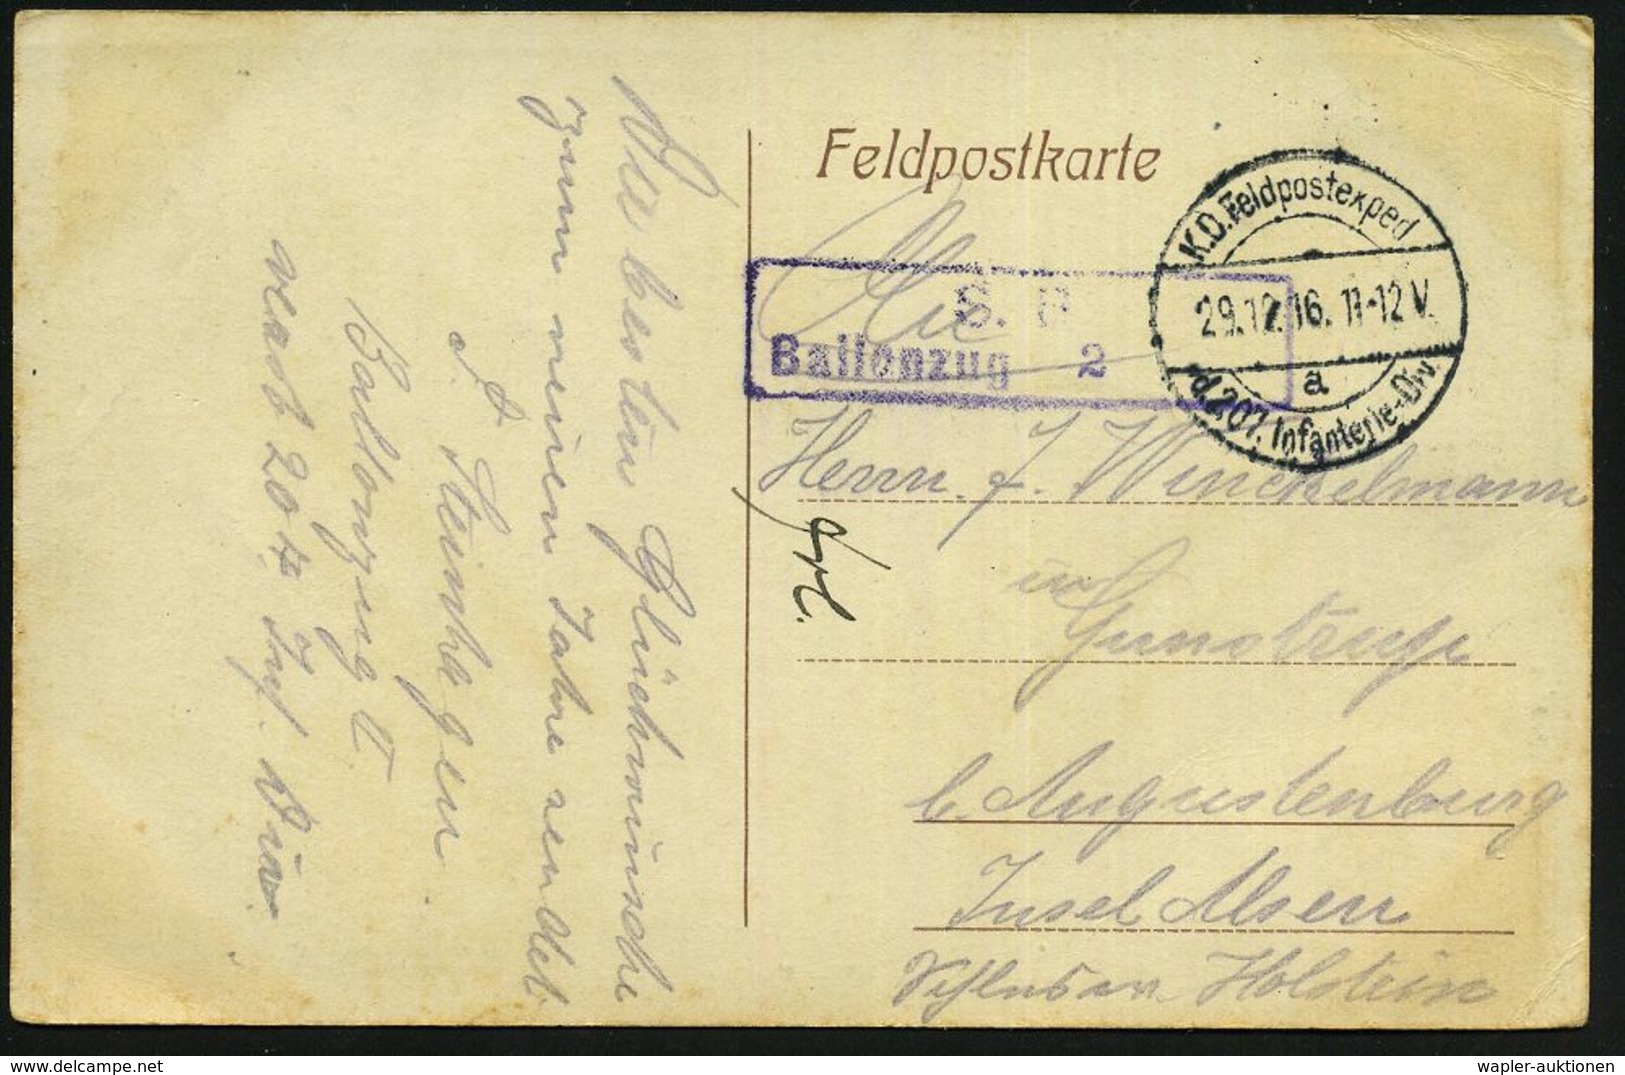 Die besten Glückwünsche
zum neuen Jahre sendet
Steinhagen
Ballonzug II
207 Inf. Div.
Feldpostkarte
K.D. Feldpostexped
29.12.16. 11-12 V.
a
d. 207. Infanterie-Div.
S. B
Ballonzug 2
Herrn J. Winckelmann
in Gunstrup
b. Augustenburg
Insel Alsen
Schleswig Holstein
wapler-auktionen